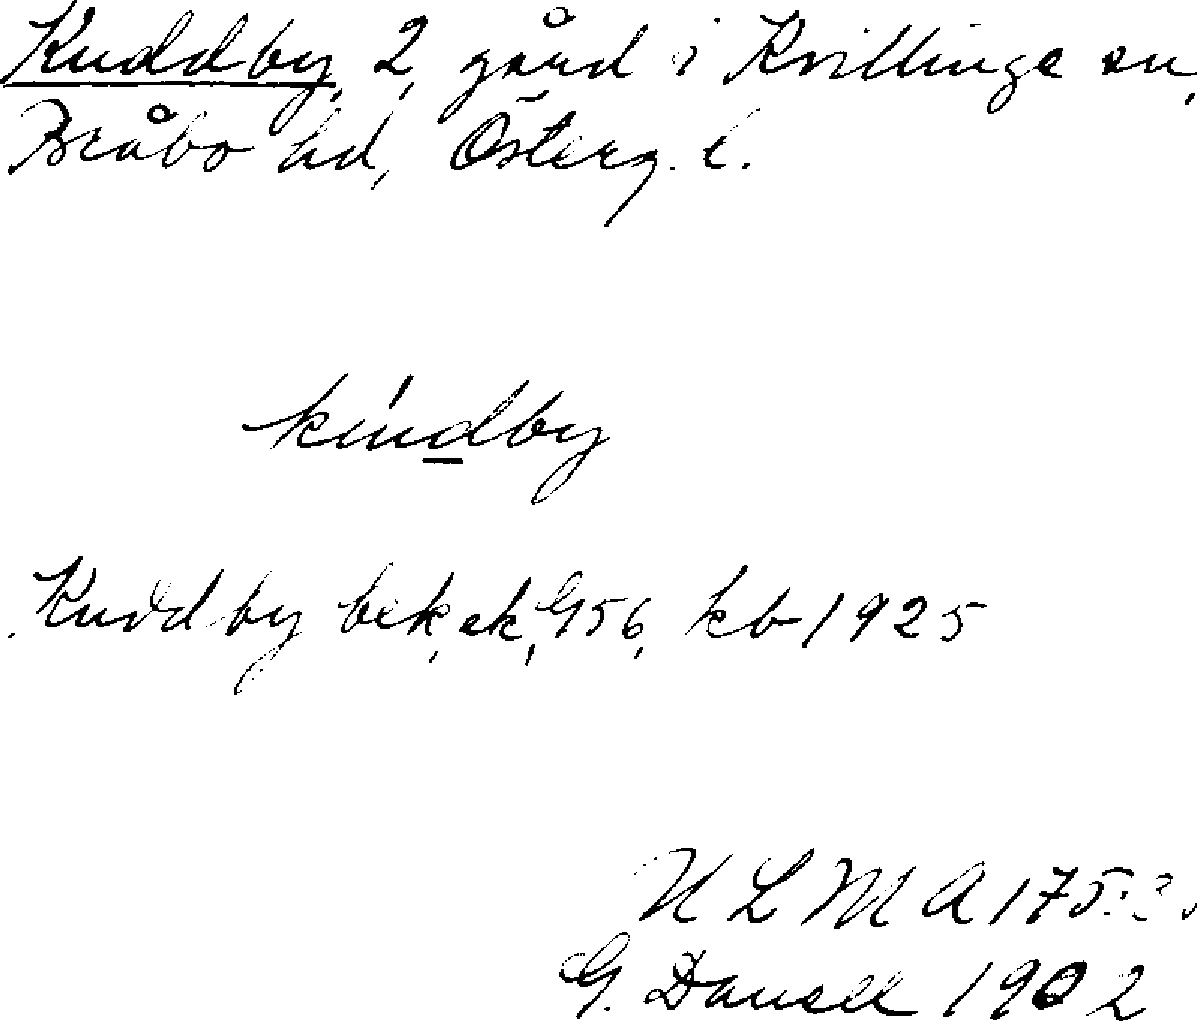 Kuddby, 2, gård i Kvillinge sn,
Bråbo hd, Österg. l.
kúdby
Kuddby bek, ek, G56, kb 1925
ULMA 175
G. Danell 1902